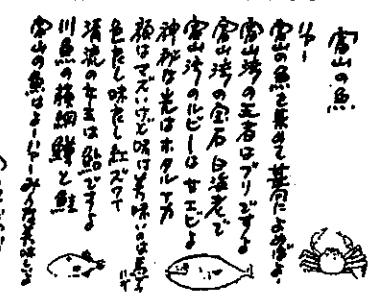 富山の魚
いやー
富山の魚を集めて葉月によめばよー
富山湾の王者はブリですよ
富山湾の宝石白海老で
富山湾のルビーは甘エビよ
神秘な光はホタルイカ
顔はまずいけど味は美味いのは
色だし味だし紅ズワイ
清流の女王は鮎ですよ
川魚の横綱鱒と鮭
富山の魚はよーいやーみんな美味いよ